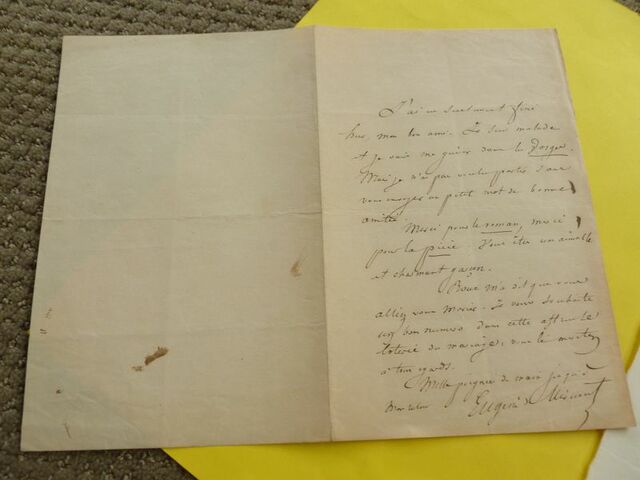 J'ai eu seulement fini
hier, mon bon ami. Je suis malade
et je vais me guérir dans les Vosges.
Mais je n'ai pas voulu partir sans
vous envoyer un petit mot de bonne
amitié.
Merci pour le roman, merci
pour la pièce. Vous êtes un aimable
et charmant garçon.
m'a dit que vous
allez vous marier. Je vous souhaite
un bon numéro dans cette affreuse
loterie du mariage, vous le méritez
à tous égards.
Mille poignées de main jusqu'à
mon retour
Eugène de Mirecourt